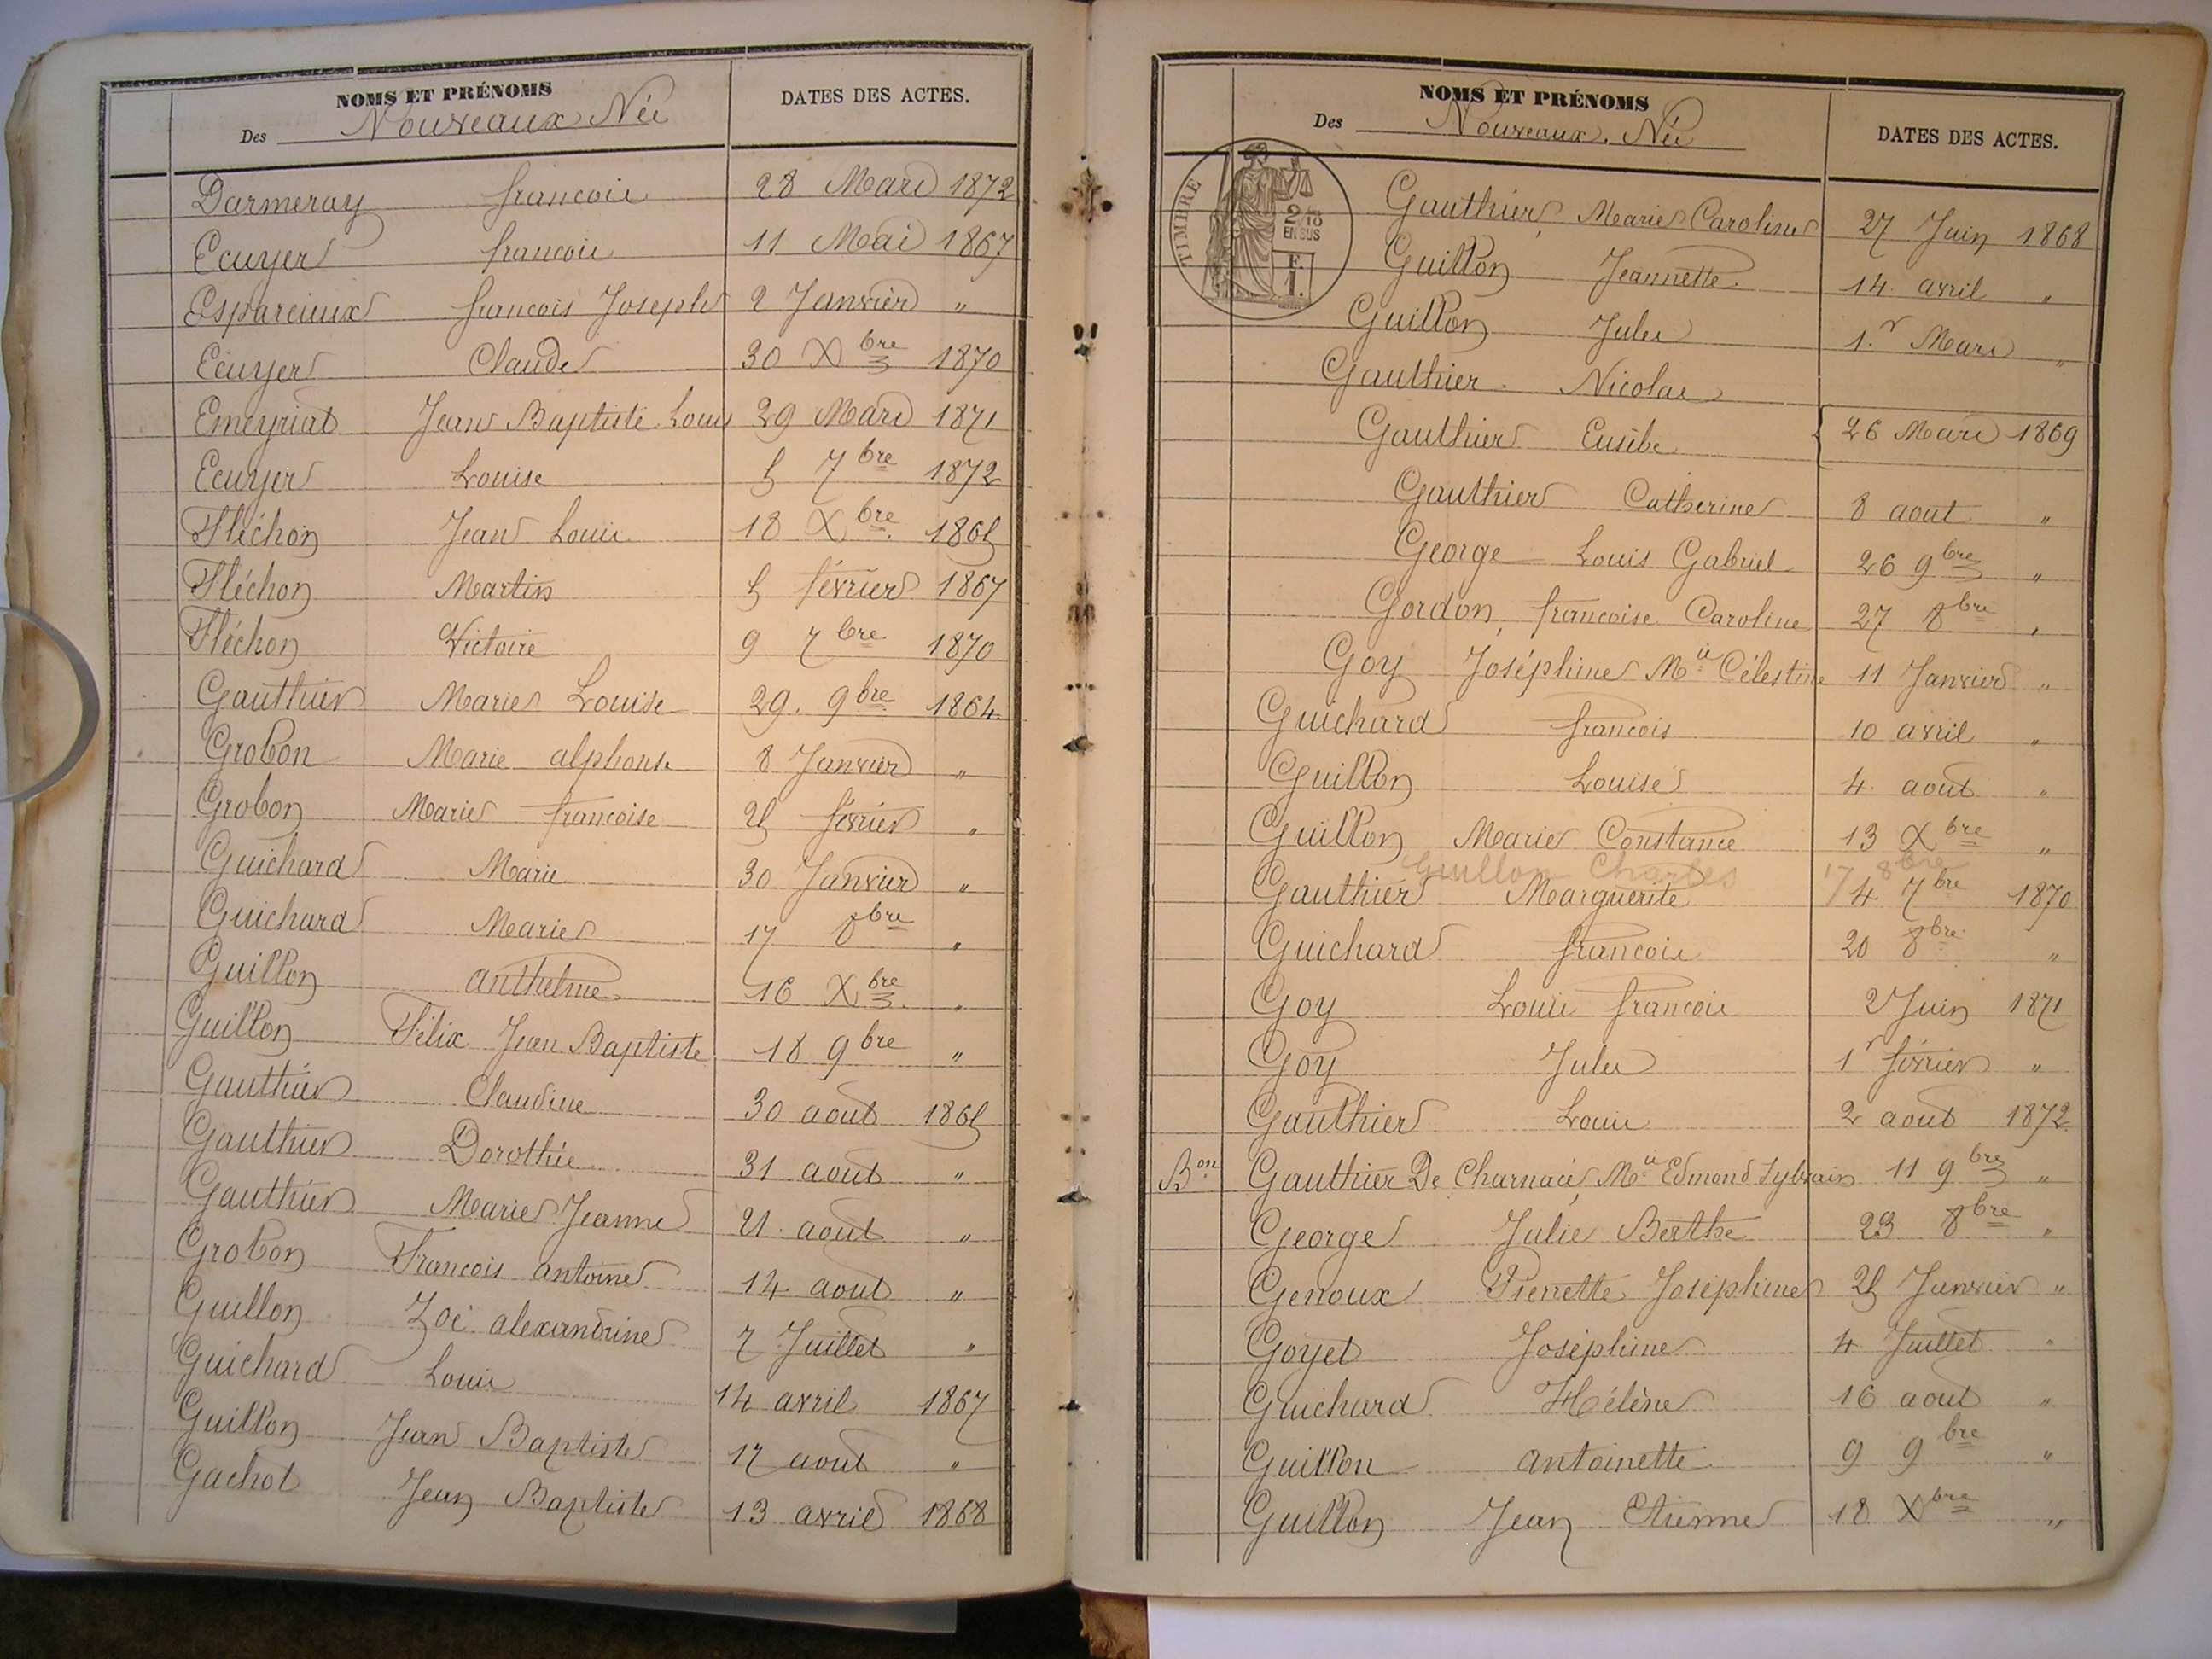 NOMS ET PRÉNOMS
Des Nouveaux Née
DATES DES ACTES.
Darmeray francois 28 Mars 1872
Ecuyer francois 11 Mai 1867
Esparcieux francois Joseph 2 Janvier "
Ecuyer Claude 30 Xbre 1870
Emeyriat Jean Baptiste Louis 29 Mars 1871
Ecuyer Louise 5 7bre 1872
Fléchon Jean Louis 18 Xbre 1865
Fléchon Martin 5 février 1867
Fléchon Victoire 9 7bre 1870
Gauthier Marie Louise 29. 9bre 1864
Grobon Marie alphonse 8 Janvier "
Grobon Marie francoise 25 février "
Guichard Marie 30 Janvier "
Guichard Marie 17 8bre "
Guillon anthelme 16 Xbre "
Guillon Félix Jean Baptiste 18 9bre "
Gauthier Claudine 30 aout 1865
Gauthier Dorothée 31 aout "
Gauthier Marie Jeanne 21 aout "
Grobon Francois antoine 14 aout "
Guillon Zoé alexandrine 7 Juillet "
Guichard Louis 14 avril 1867
Guillon Jean Baptiste 17 aout "
Gachot Jean Baptiste 13 avril 1868
NOMS ET PRÉNOMS
Des Nouveaux. Née
DATES DES ACTES.
TIMBRE
2/10
EN SUS
F.
1.
Gauthier, Marie Caroline 27 Juin 1868
Guillon Jeannette 14 avril "
Guillon Jules 1.r Mars "
Gauthier Nicolas
Gauthier Eusèbe { 26 Mars 1869
Gauthier Catherine 8 aout "
George Louis Gabriel 26 9bre "
Gordon, francoise Caroline 27 8bre "
Goy Joséphine Mie Célestine 11 Janvier "
Guichard francois 10 avril "
Guillon Louise 4 aout "
Guillon Marie Constance 13 Xbre "
Guillon Charles 17 8bre
Gauthier Marguerite 4 7bre 1870
Guichard francois 20 8bre "
Goy Louis francois 2 Juin 1871
Goy Jules 1r février "
Gauthier Louis 2 aout 1872
Bon Gauthier De Charnacé, Mie Edmond Sylvain 11 9bre "
George Julie Berthe 23 8bre "
Genoux Pierrette Joséphine 25 Janvier "
Goyet Joséphine 4 Juillet "
Guichard Hélène 16 aout "
Guillon antoinette 9 9bre "
Guillon Jean Etienne 18 Xbre "